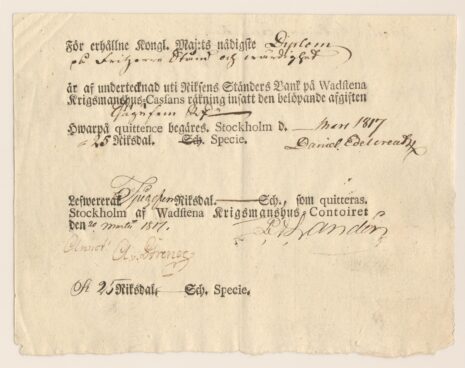 För erhållne Kongl. Maj:ts nådigste Diplom
på Friherre Stånd och wärdighet
är af undertecknad uti Riksens Ständers Bank på Wadstena
Krigsmanshus-Cassans räkning insatt den belöpande afgiften
Tjugufem
Hwarpå quittence begäres. Stockholm d. Mars 1817
25 Riksdal. Sch. Specie. Daniel Edelcreutz
Lefwererat Tjugufem Riksdal. Sch., som quitteras.
Stockholm af Wadstena Krigsmanshus Contoiret
den 20 Martii 1817. Landén
Annot.
St 25 Riksdal. Sch. Specie.